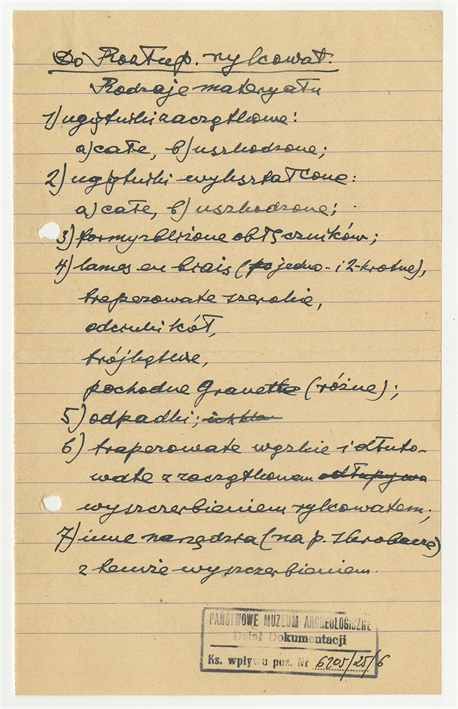 Do Roztłup. rylcowat.
Rodzaje materyału
1) zaczątkowe:
a) całe, b) uszkodzone;
2) wykształcone:
a) całe, b) uszkodzone;
3) formy zbliżone obłęczników;
4) lames en biais (po jedno- i 2-krotne),
trapezowate szerokie,
odcinki kół,
trójkątne,
pochodne Gravette (różne);
5) odpadki;
6) trapezowate wązkie i dłuto-
wate z zaczątkowem
wyszczerbieniem rylcowatem;
7) inne narzędzia (na p. skrobacze)
z temże wyszczerbieniem.
PAŃSTWOWE MUZEUM ARCHEOLOGICZNE
Dział Dokumentacji
Ks. wpływu poz. Nr 6205/25/6